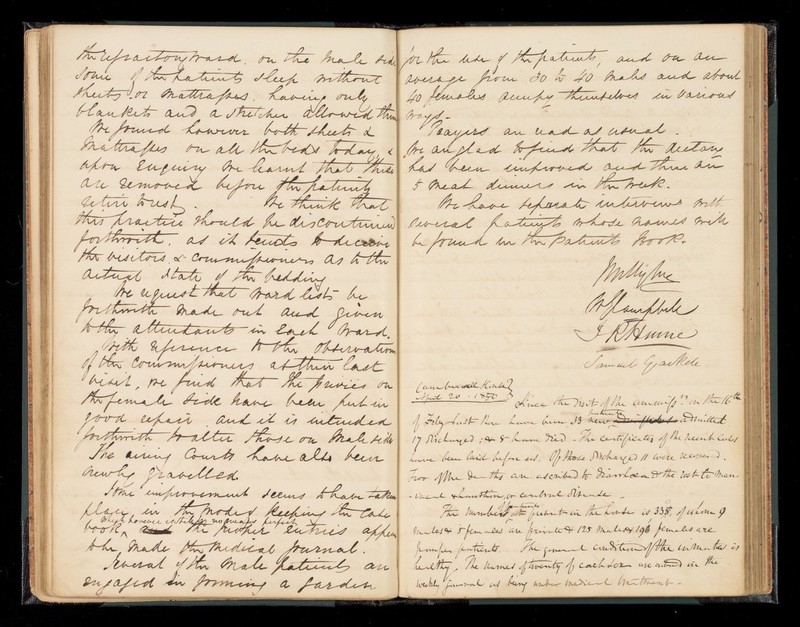 the refractory ward on the male side
some of the patients sleep without
sheets or mattrasses having only
blankets and a stretcher allowed them
We found however both sheets &
mattrasses on all the beds today &
upon enquiry we learnt that these
are removed before the patients
retire to rest. We think that
this practice should be discontinued
forthwith, as it tends to deceive
the visitors & commissioners as to the
actual state of the bedding
We request that ward lists be
forthwith made out and given
to the attendants in each ward.
With reference to the observations
of the Commissioners at their last
visit, we find that the privies on
the female side have been put in
good repair and it is intended
forthwith to alter those on male side
The airing Courts have also been
newly gravelled
Some improvement seems to have taken
place in the mode of keeping the Case
book, the proper entries appear
though however certainly no means perfect
to be made the medical journal.
Several of the male patients are
engaged in forming a garden
for the use of the patients, and on an
average from 30 to 40 males and about
40 females occupy themselves in various
ways.
Prayers are read as usual.
We are glad to find that the dietary
has been improved and there are
5 meat dinners in the week.
We have separate interviews with
several patients whose names will
be found in the Patients Book.
W Campbell
J R Hume
Samuel Gaskell
Camberwell House
April 20 - 1850
Since the visit of the Commissrs on the 16th
of Feby last there have been 33 admitted
17 discharged, & 8 have died. The certificates of the recent cases
have been laid before us. Of those discharged 11 were recovered.
Two of the deaths are ascribed to diarrhoea & the rest to
exhaustion, or cerebral disease.
The number of patients in the house is 338, of whom 9
males & 5 females are private & 128 males & 196 females are
pauper patients. The general condition of the inmates is
healthy. The names of twenty of each sex are entered in the
weekly journal as being under medical treatment.